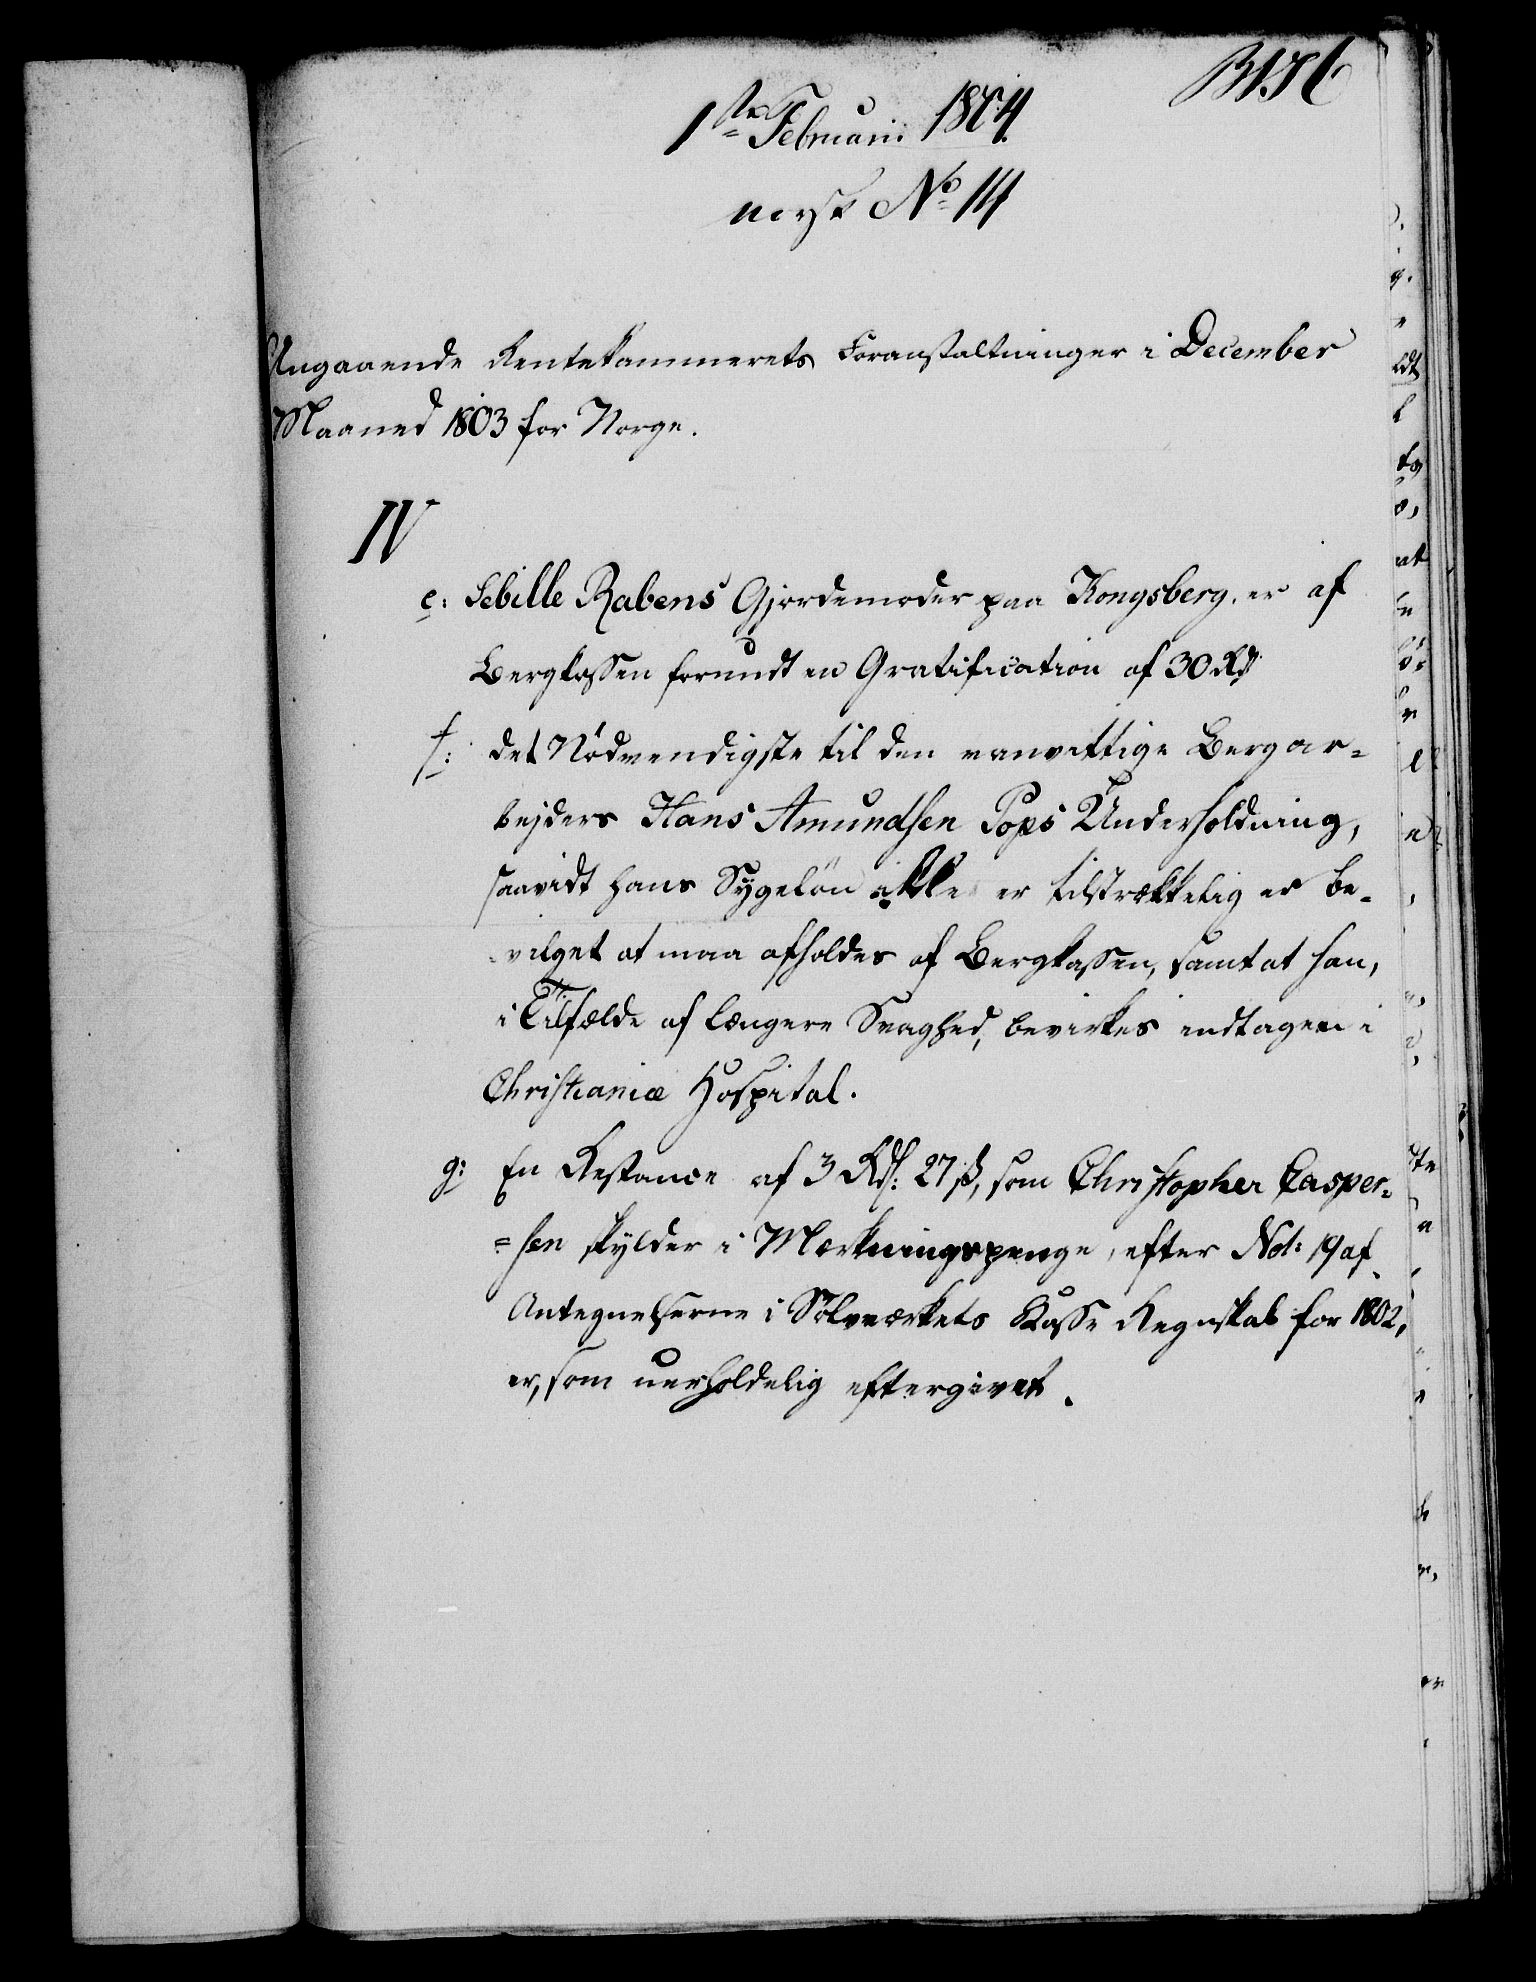 1ste Februarii 1804
norsk No 14
Angaaende Rentekammerets Foranstaltninger i December
Maaned 1803 for Norge.
IV
e: Sebille Rabens Gjordemoder paa Kongsberg, er af
Bergkassen forundt en Gratification af 30 Rd
f: det Nödvendigste til den vanvittige Bergar=
bejders Hans Amundsen Pops Underholdning,
saavidt hans Sygelön ikke er tilstrækkelig er be=
vilget at maa afholdes af Bergkassen, samt at han,
i Tilfælde af længere Svaghed, bevirkes indtagen i
Christianiæ Hospital.
g: En Restance af 3 Rd: 27 ß, som Christopher Casper=
=sen skylder i Mærkningspenge, efter Not: 19 af
Antegnelserne i Sölvværkets Kasse Regnskab for 1802,
er, som uerholdelig eftergivet.